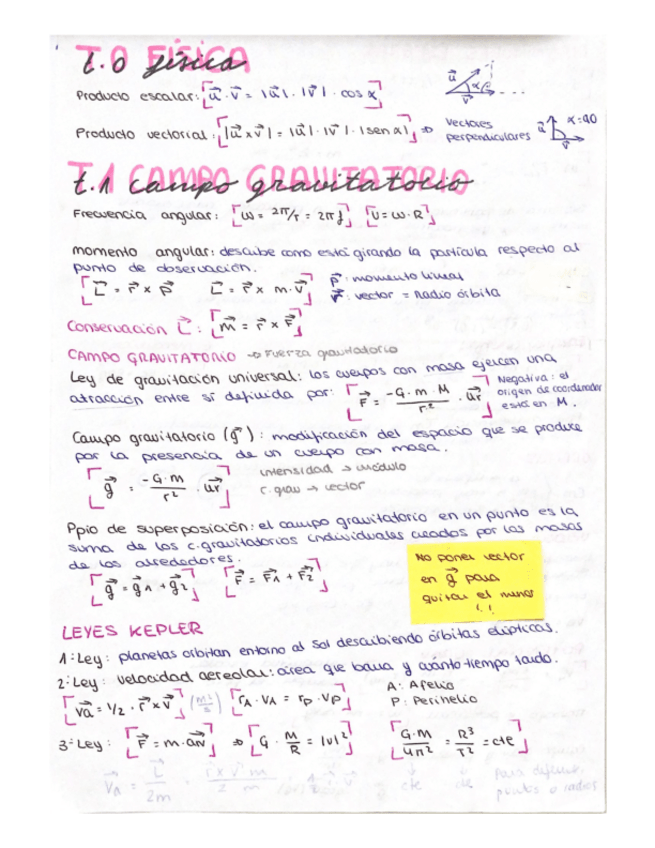 T.0 FÍSICA
t.0 física
Producto escalar: [u⃗ · v⃗ = |u⃗| · |v⃗| · cos α] u⃗ α v⃗
Producto vectorial: [|u⃗ x v⃗| = |u⃗| · |v⃗| · |sen α|] ⇒ vectores perpendiculares u⃗ v⃗ α=90
T.1 CAMPO GRAVITATORIO
t.1 campo gravitatorio
Frecuencia angular: [ω = 2π/T = 2πf] [v = ω · R]
momento angular: describe como está girando la partícula respecto al
punto de observación.
[L⃗ = r⃗ x p⃗ L⃗ = r⃗ x m · v⃗] p⃗: momento lineal
r⃗: vector = Radio órbita
Conservación L⃗: [m⃗ = r⃗ x F⃗]
CAMPO GRAVITATORIO → Fuerza gravitatoria
Ley de gravitación universal: los cuerpos con masa ejercen una
atracción entre sí definida por: [F⃗ = -G · m · M / r² · u⃗r] Negativa: el
origen de coordenadas
está en M.
Campo gravitatorio (g⃗): modificación del espacio que se produce
por la presencia de un cuerpo con masa.
[g⃗ = -G · M / r² · u⃗r] intensidad → módulo
r. grav → vector
Ppio de superposición: el campo gravitatorio en un punto es la
suma de los c. gravitatorios individuales creados por las masas
de los alrededores.
[g⃗ = g⃗1 + g⃗2] [F⃗ = F⃗1 + F⃗2]
No poner vector
en g⃗ para
quitar el menos
!!
LEYES KEPLER
1ª Ley: planetas orbitan entorno al Sol describiendo órbitas elípticas.
2ª Ley: velocidad aereolar: área que barre y cuánto tiempo tarda.
[v⃗a = 1/2 · r⃗ x v⃗] (m²/s) [rA · vA = rp · vp] A: Afelio
P: Perihelio
3ª Ley: [F⃗ = m · a⃗n] ⇒ [G · M/R = |v|²] [G·M / 4π² = R³/T² = cte]
V⃗A = L⃗ / 2m
cte
para
puntos o radios